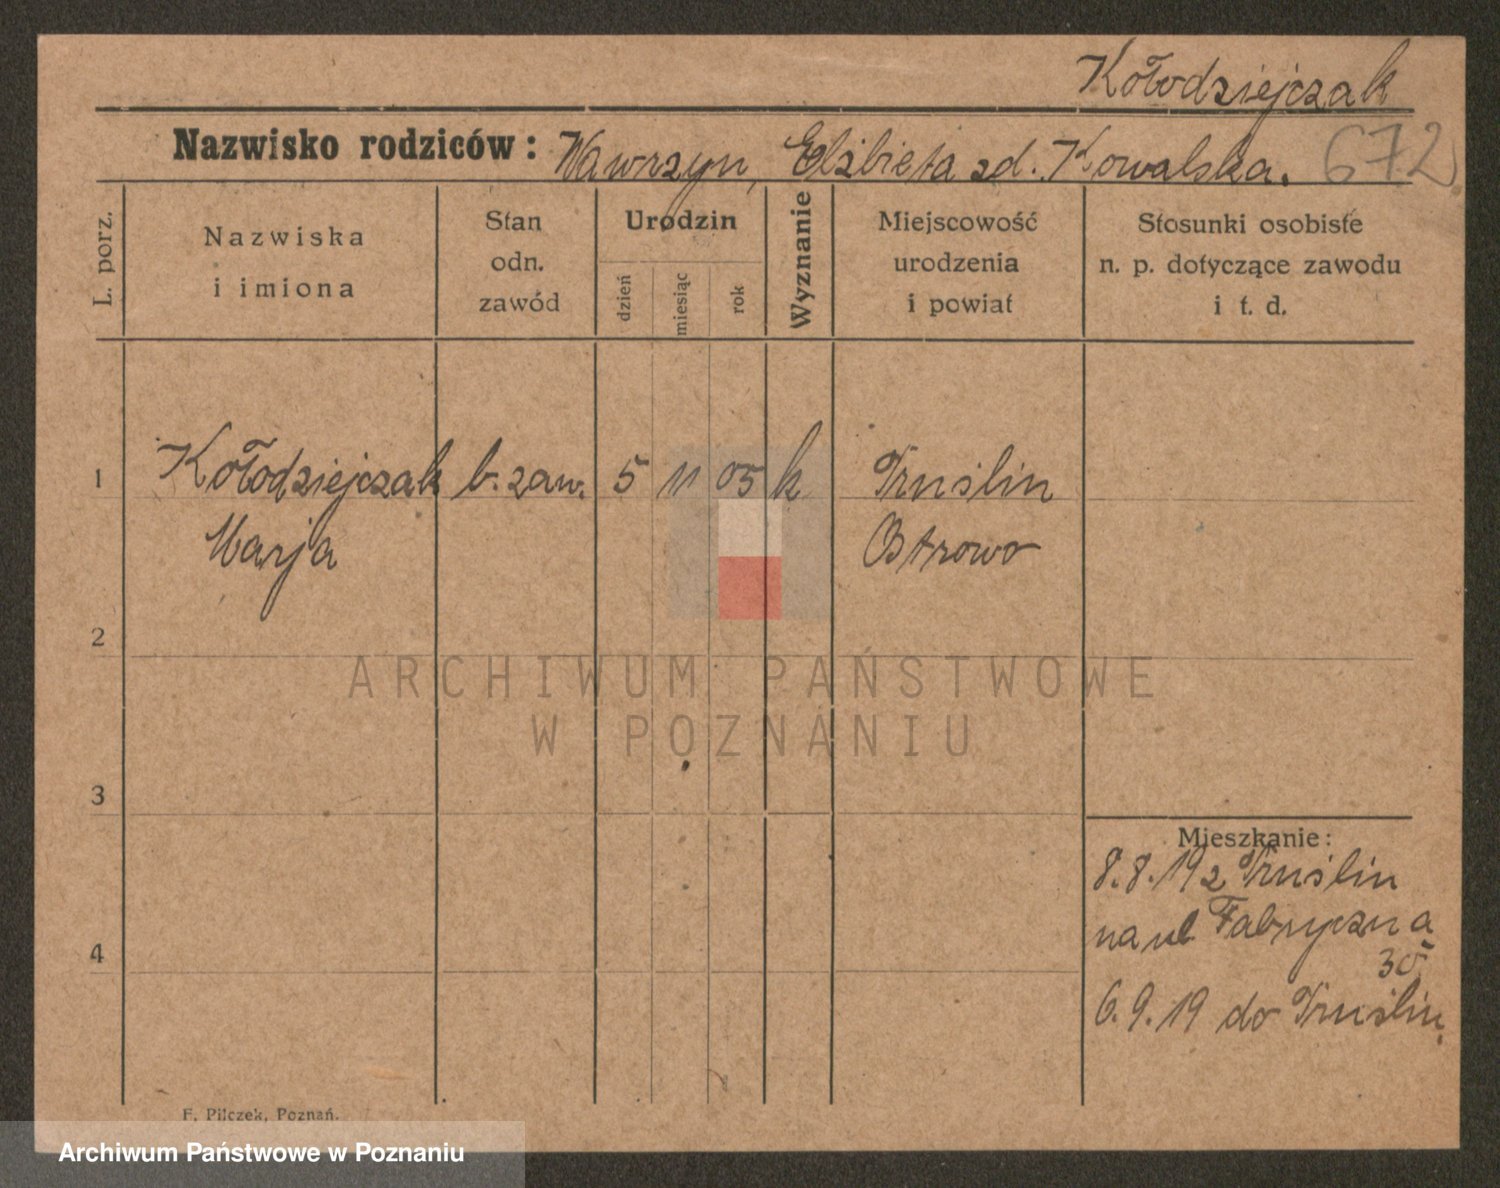 Kołodziejczak
Nazwisko rodziców: Wawrzyn, Elżbieta zd. Kowalska. 672
L. porz.
Nazwiska
i imiona
Stan
odn.
zawód
Urodzin
dzień
miesiąc
rok
Wyznanie
Miejscowość
urodzenia
i powiat
Stosunki osobiste
n. p. dotyczące zawodu
i t. d.
1 Kołodziejczak b. zaw. 5 11 05 k Truślin
Marja Ostrowo
2
ARCHIWUM PAŃSTWOWE
W POZNANIU
3
Mieszkanie:
8.8.19 z Truślin
na ul Fabryczna
4
6.9.19 do Truślin.
F. Pilczek, Poznań.
Archiwum Państwowe w Poznaniu